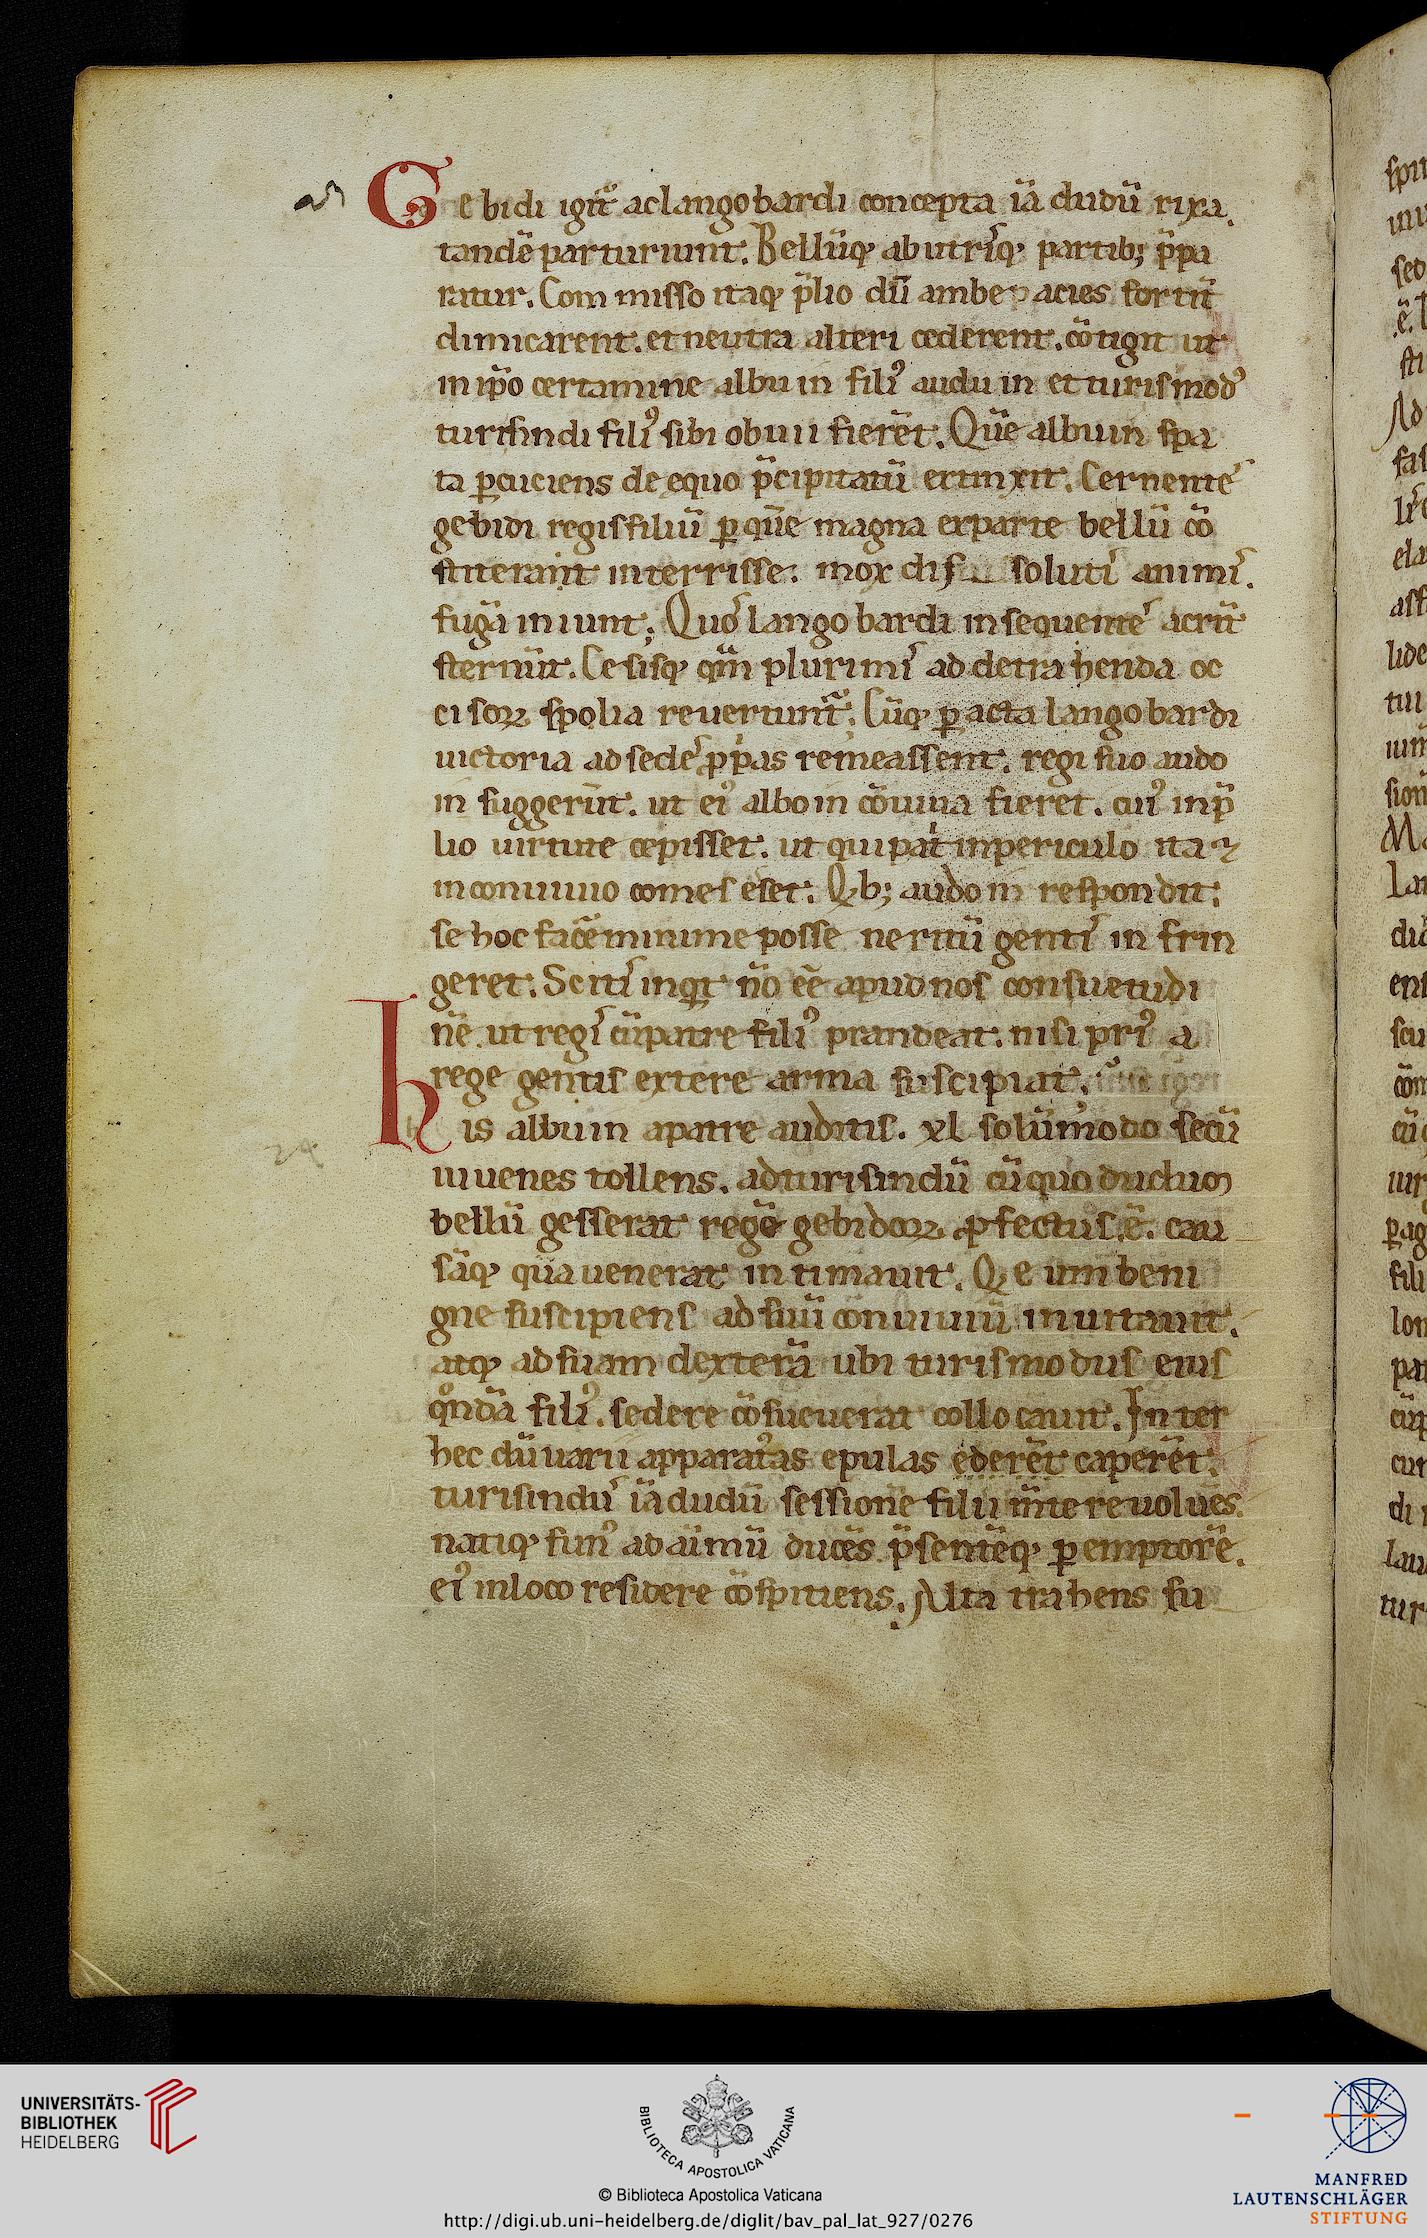 Gebidi igit᷑ ac langobardi concepta ia̅ dudu̅ rixa.
tande̅ parturiunt. Bellu̅q; ab utriq; partib; p̅pa
ratur. Commisso itaq; p̅lio du̅ ambe acies fortit̅
dimicarent. et neutra alteri cederent. co̅tigit ut
in ip̅o certamine albuin fili᷒ auduin et turismod᷒
turisindi fili᷒ sibi obuii fiere̅t. Que̅ albuin spa
ta ꝑcuciens de equo p̅cipitatu̅ extinxit. Cernente᷒
gebidi regis filiu̅ ꝑ que̅ magna ex parte bellu̅ co̅
stiterant interrisse. mox dis soluti᷒ animi᷒.
fuga̅ iniunt. Quo᷒ langobardi insequente᷒ acrit̅
sternu̅t. Cesisq; qua̅ plurimi᷒ ad detrahenda oc
cisoꝝ spolia reuertunt᷑. Cu̅q; ꝑacta langobardi
uictoria ad sede᷒ ꝓpias remeassent. regi suo audo
in suggeru̅t. ut ei᷒ alboin co̅uiua fieret. cui᷒ in p̅
lio uirtute cepisset. ut qui pat̅ in periculo ita ⁊
in conuiuio comes eset. Qb; audoin respondit.
se hoc face̅ minime posse ne ritu̅ genti᷒ infrin
geret. Sciti᷒ inqt n̅o ee̅ apud nos consuetudi
ne̅. ut regi᷒ cu̅ patre fili᷒ prandeat. nisi pri᷒ a
rege gentis extere arma suscipiat.
his albuin a patre auditis. xl solu̅modo secu̅
iuuenes tollens. ad turisindu̅ cu̅ quo dudum
bellu̅ gesserat rege̅ gebidoꝝ ꝓfectus.e̅. cau
sa̅q; qua uenerat intimauit. Qe um beni
gne suscipiens ad suu̅ co̅uiuiu̅ inuitauit.
atq; ad suam dextera̅ ubi turismodus eius
qͦnda̅ fili᷒. sedere co̅sueuerat collocauit. Inter
hec du̅ uarii apparat᷒as epulas edere̅t capere̅t.
turisindu᷒ ia̅dudu̅ sessione̅ filii m̅te reuolue̅s.
natiq; fun᷒ ad ai̅mu̅ duce̅s p̅sente̅q; ꝑemptore̅.
ei᷒ in loco residere co̅spitiens. Alta trahens su
UNIVERSITÄTS-
BIBLIOTHEK
HEIDELBERG
BIBLIOTECA APOSTOLICA VATICANA
© Biblioteca Apostolica Vaticana
http://digi.ub.uni-heidelberg.de/diglit/bav_pal_lat_927/0276
MANFRED
LAUTENSCHLÄGER
STIFTUNG